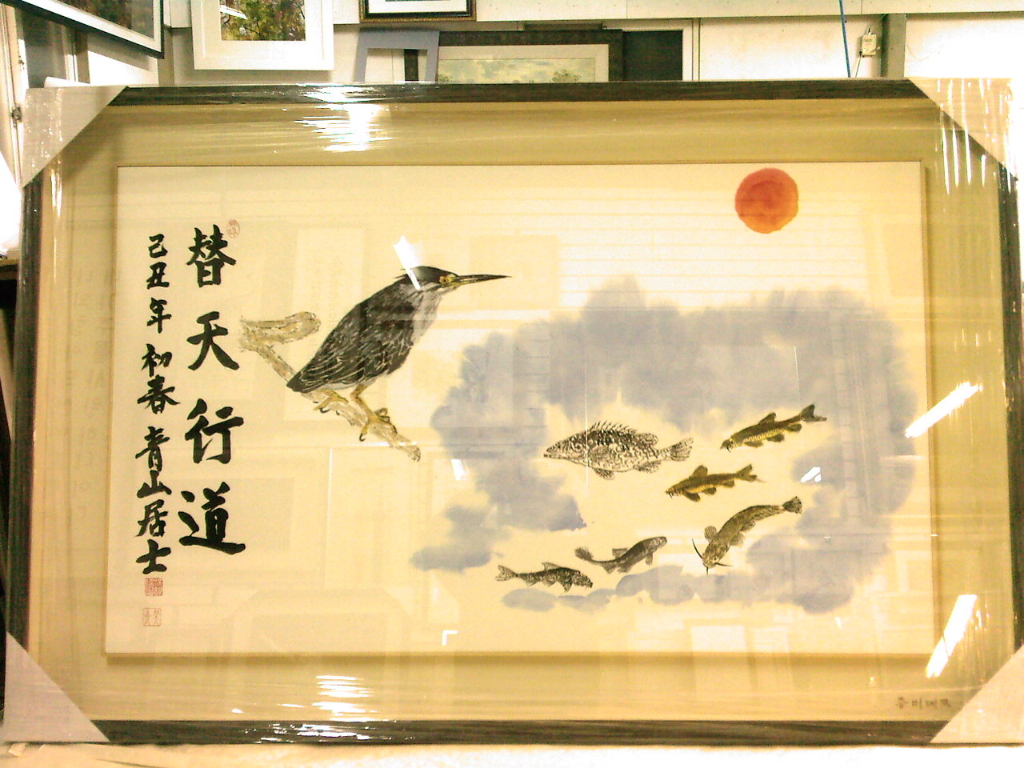 替天行道
己丑年 初春 青山居士